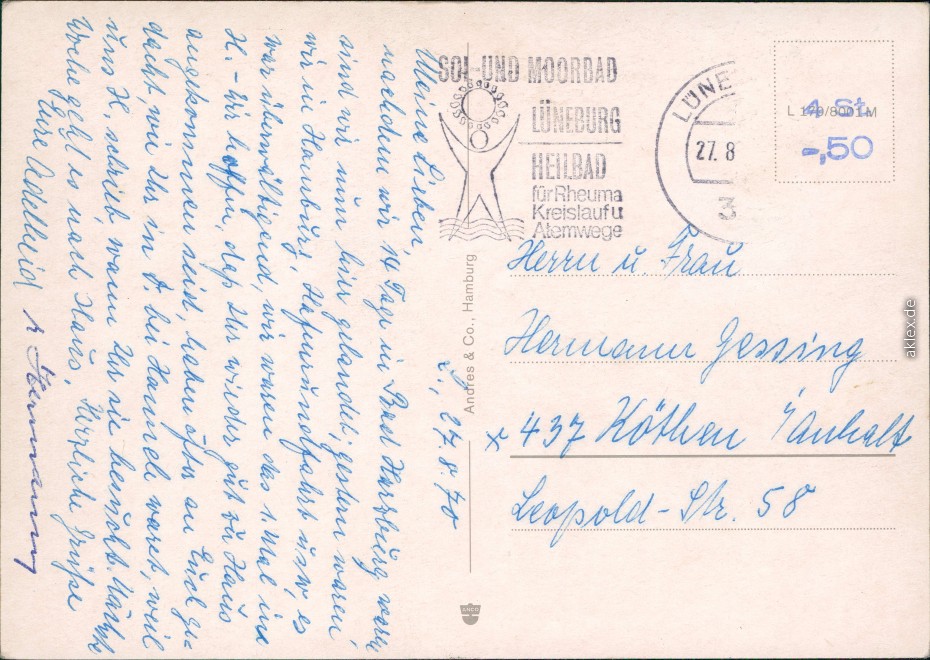 L., 27.8.70
Meine Lieben,
nachdem wir 14 Tage in Bad Harzburg waren
sind wir nun hier gelandet; gestern waren
wir in Hamburg, Hafenrundfahrt usw. es
war überwältigend, wir waren das 1. Mal in
H. - wir hoffen, daß Ihr wieder gut zu Haus
angekommen seid, haben öfter an Euch ge-
dacht, wie Ihr in A. bei Hannel waret, weil
uns H. schrieb, wann Ihr sie besucht. Nächste
Woche geht es nach Haus, Herzliche Grüße
Eure Adelheid
u. Hermann
SOL- UND MOORBAD
LÜNEBURG
HEILBAD
für Rheuma
Kreislauf u
Atemwege
LÜNE
27. 8
3
L 179/8001 M
4 St.
-,50
Herrn u. Frau
Hermann Gessing
x 437 Köthen /Anhalt
Leopold-Str. 58
Andres & Co., Hamburg
ANCO
aklex.de